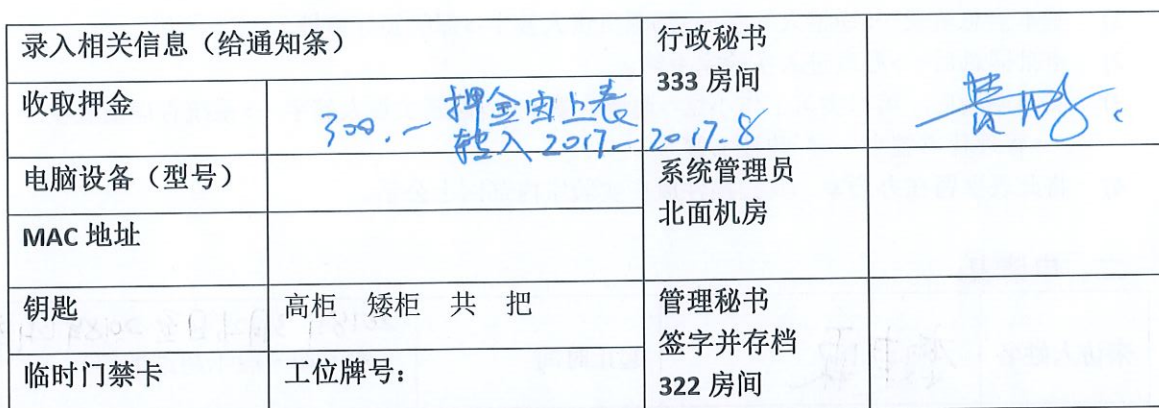 录入相关信息（给通知条）
行政秘书
333 房间
收取押金
300.— 押金由上表
转入 2017–2017.8
电脑设备（型号）
系统管理员
北面机房
MAC 地址
钥匙
高柜 矮柜 共 把
管理秘书
签字并存档
322 房间
临时门禁卡
工位牌号：